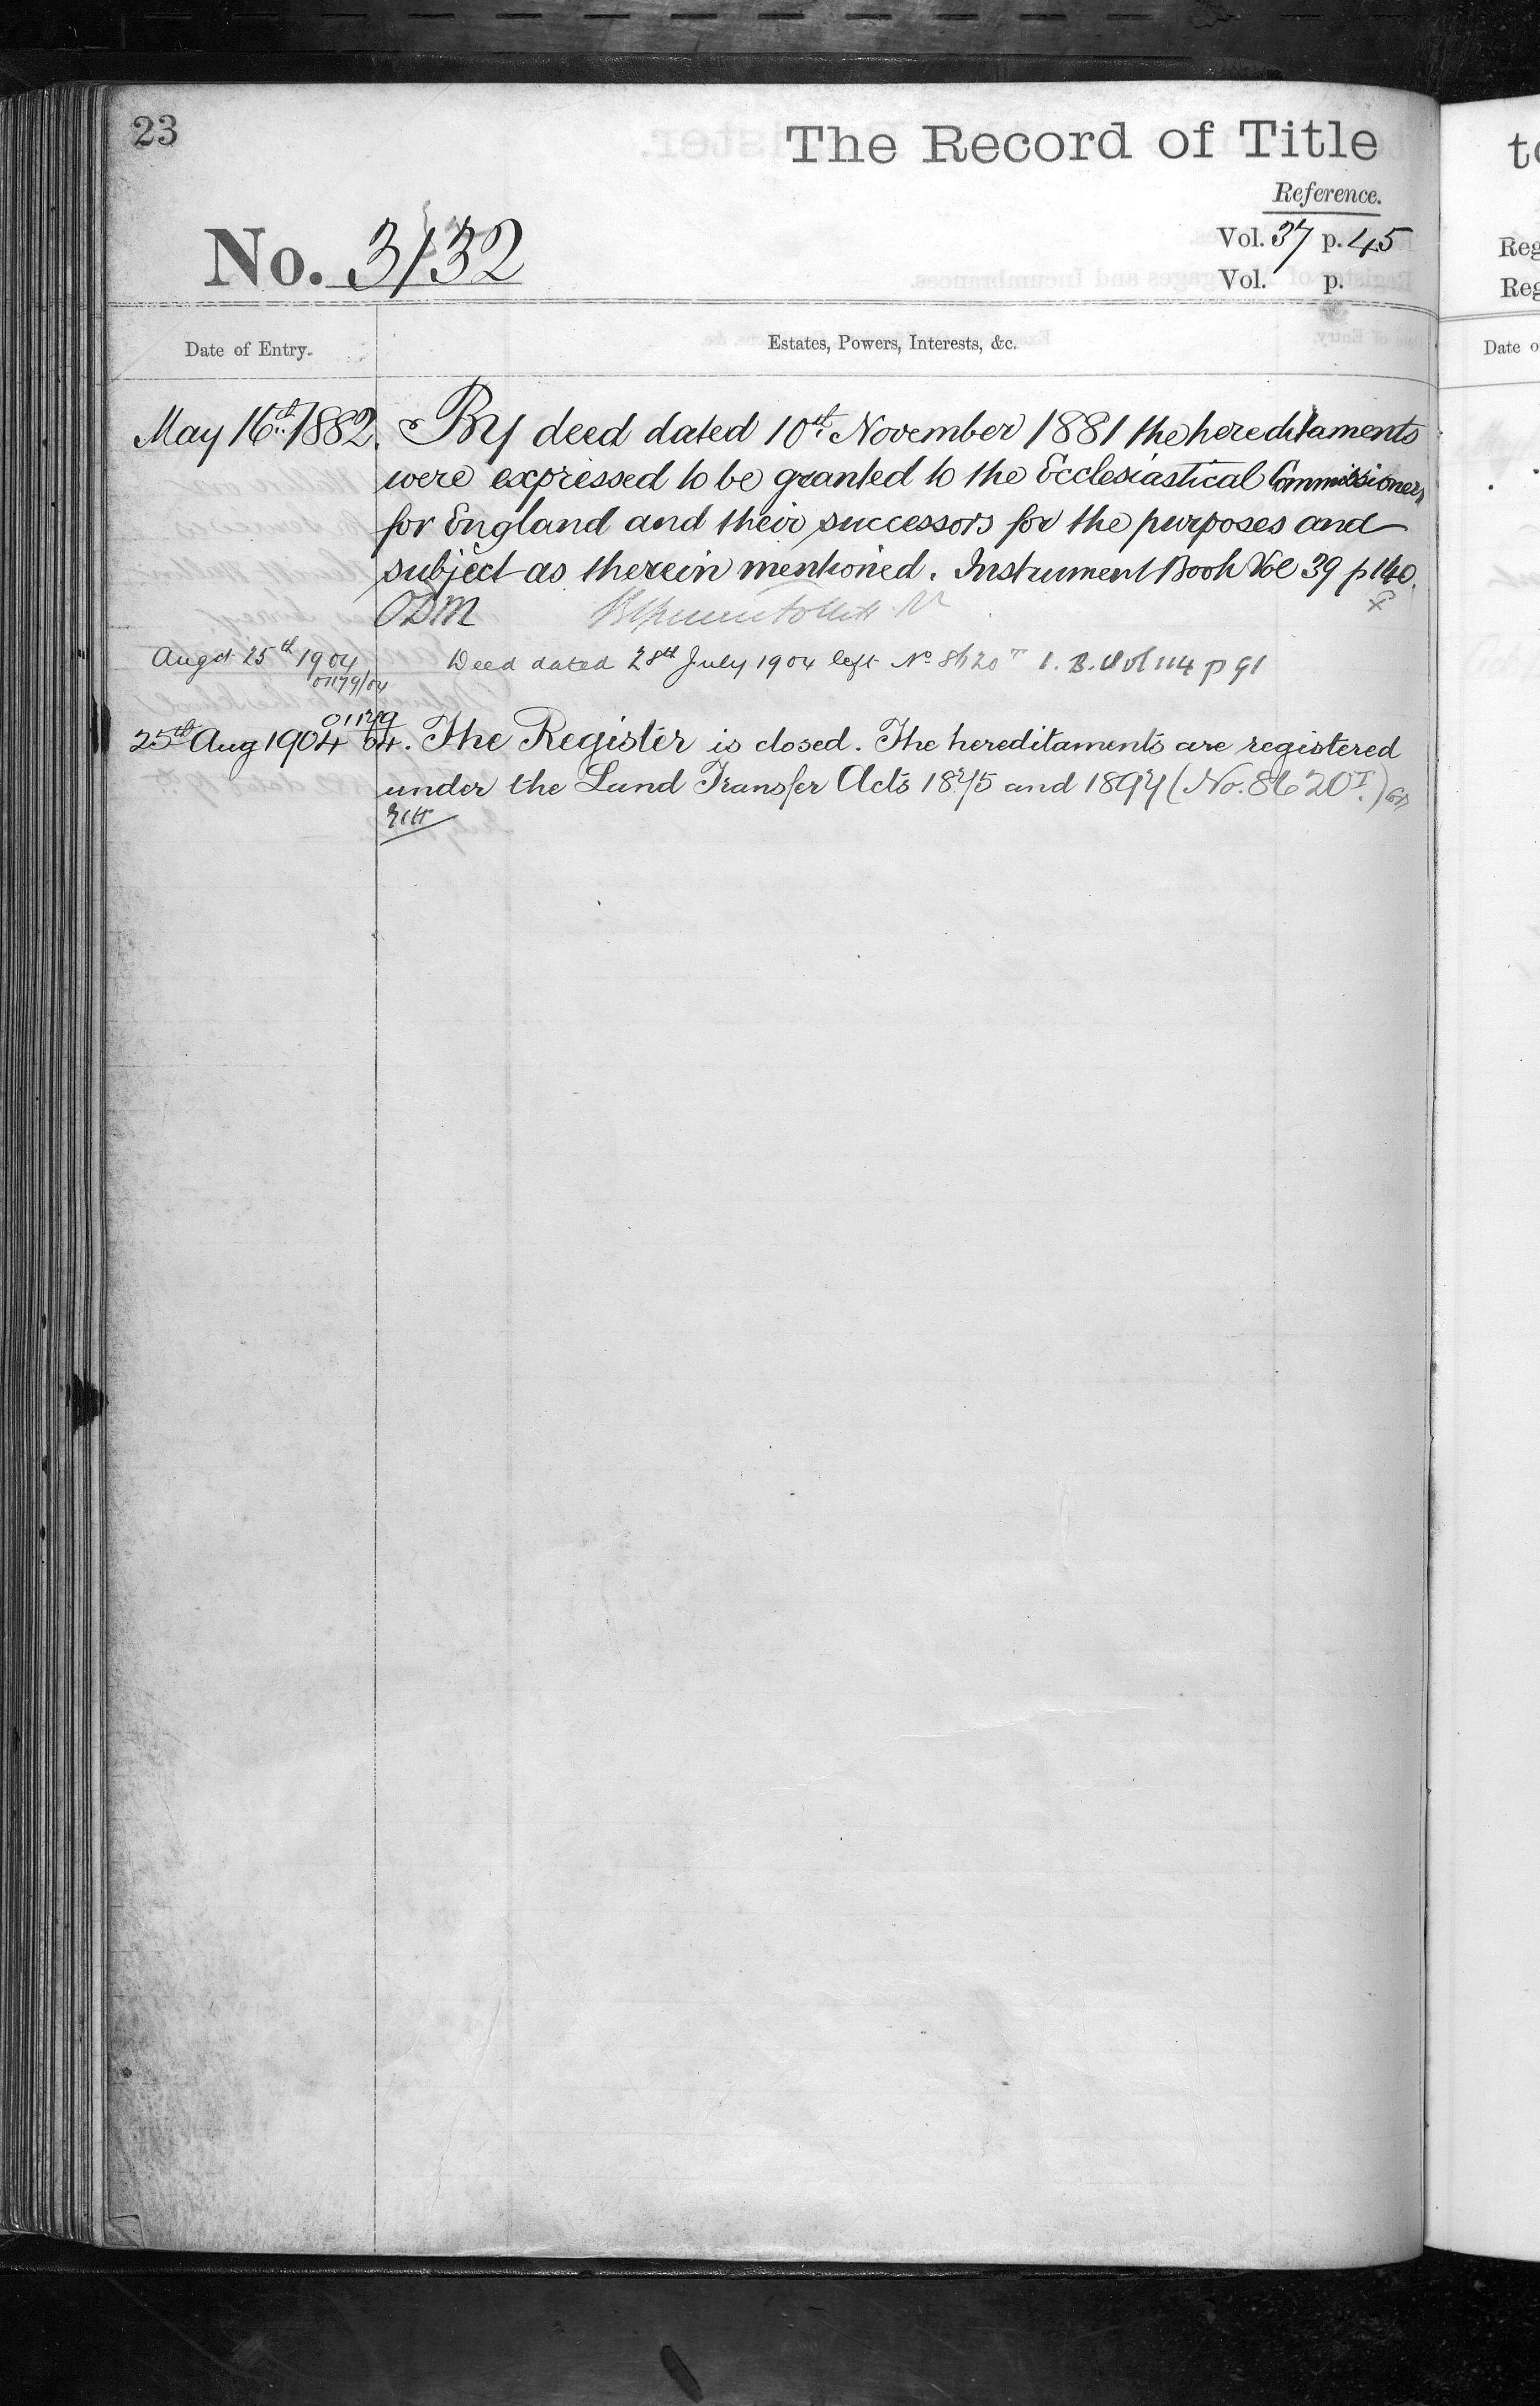 23
The Record of Title
Reference.
No. 3132
Vol. 37 p. 45
Vol. p.
Date of Entry.
Estates, Powers, Interests, &c.
May 16th 1882. By deed dated 10th November 1881 the hereditaments
were expressed to be granted to the Ecclesiastical Commissioners
for England and their successors for the purposes and
subject as therein mentioned. Instrument Book Vol 39 p 140.
ODM
Augst 25th 1904 Deed dated 28th July 1904 left No 8620 I. B. Vol 114 p 91
01179/04
01179
25th Aug 1904 04. The Register is closed. The hereditaments are registered
under the Land Transfer Acts 1875 and 1897 (No. 8620I.)
to
Reg
Reg
Date o